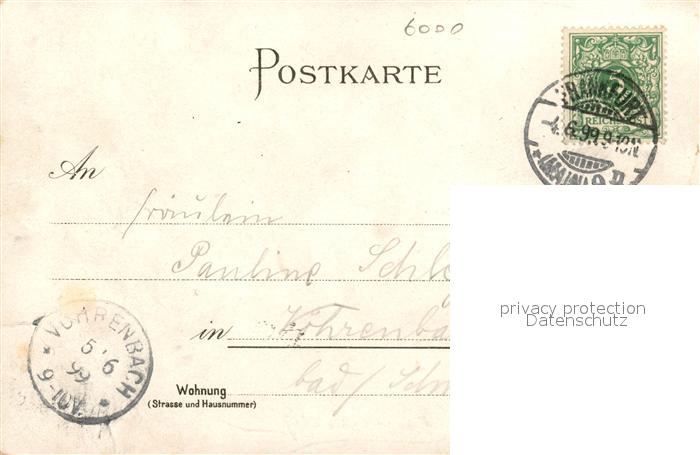 6000
POSTKARTE
5
REICHSPOST
FRANKFURT
4.6.99.9-10N.
(MAIN) 9
An
Fräulein
Pauline Schl
in Vöhrenba
bad/ Sch
privacy protection
Datenschutz
VÖHRENBACH
5.6
99
Wohnung
(Strasse und Hausnummer)